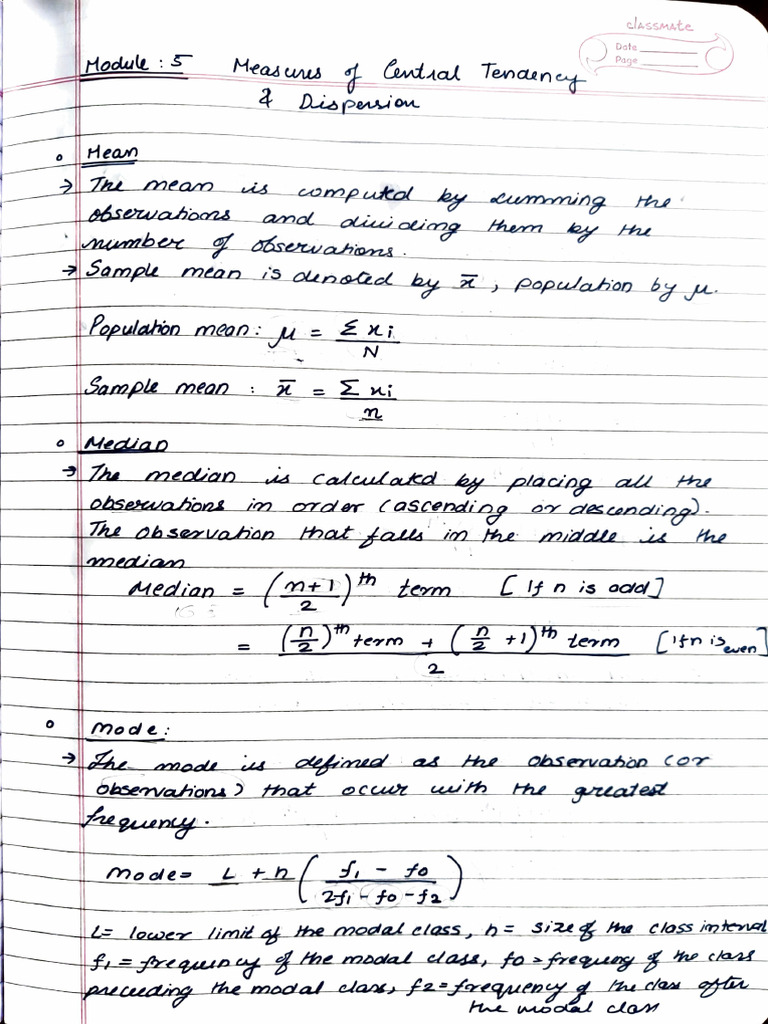 classmate
Date
Page
Module : 5 Measures of Central Tendency
& Dispersion
Mean
→ The mean is computed by summing the
observations and dividing them by the
number of observations.
→ Sample mean is denoted by x̄, population by μ.
Population mean: μ = Σxi / N
Sample mean : x̄ = Σxi / n
Median
→ The median is calculated by placing all the
observations in order (ascending or descending).
The observation that falls in the middle is the
median
Median = ((n+1)/2)th term [If n is odd]
= ((n/2)th term + (n/2 +1)th term) / 2 [If n is even]
Mode:
→ The mode is defined as the observation (or
observations) that occur with the greatest
frequency.
Mode= L + h ((f1 - f0) / (2f1 - f0 - f2))
L= lower limit of the modal class, h= size of the class interval
f1 = frequency of the modal class, f0 = frequency of the class
preceding the modal class, f2 = frequency of the class after
the modal class